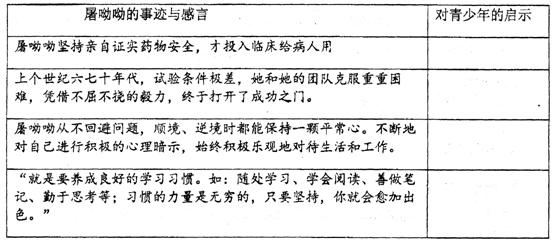 屠呦呦的事迹与感言
对青少年的启示
屠呦呦坚持亲自证实药物安全，才投入临床给病人用
上个世纪六七十年代，试验条件极差，她和她的团队克服重重困
难，凭借不屈不挠的毅力，终于打开了成功之门。
屠呦呦从不回避问题，顺境、逆境时都能保持一颗平常心。不断地
对自己进行积极的心理暗示，始终积极乐观地对待生活和工作。
“就是要养成良好的学习习惯。如：随处学习、学会阅读、善做笔
记、勤于思考等；习惯的力量是无穷的，只要坚持，你就会愈加出
色。”